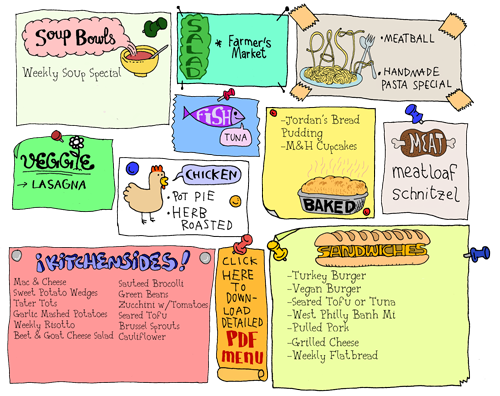 Soup Bowls
Weekly Soup Special
SALAD
* Farmer's
Market
PASTA
• MEATBALL
• HANDMADE
PASTA SPECIAL
FISH
TUNA
VEGGIE
→ LASAGNA
CHICKEN
• POT PIE
• HERB
ROASTED
-Jordan's Bread
Pudding
-M&H Cupcakes
BAKED
MEAT
meatloaf
schnitzel
¡KITCHENSIDES!
Mac & Cheese
Sweet Potato Wedges
Tater Tots
Garlic Mashed Potatoes
Weekly Risotto
Beet & Goat Cheese Salad
Sauteed Brocolli
Green Beans
Zucchini w/Tomatoes
Seared Tofu
Brussel Sprouts
Cauliflower
CLICK
HERE
TO
DOWN-
LOAD
DETAILED
PDF
MENU
SANDWICHES
-Turkey Burger
-Vegan Burger
-Seared Tofu or Tuna
-West Philly Banh Mi
-Pulled Pork
-Grilled Cheese
-Weekly Flatbread